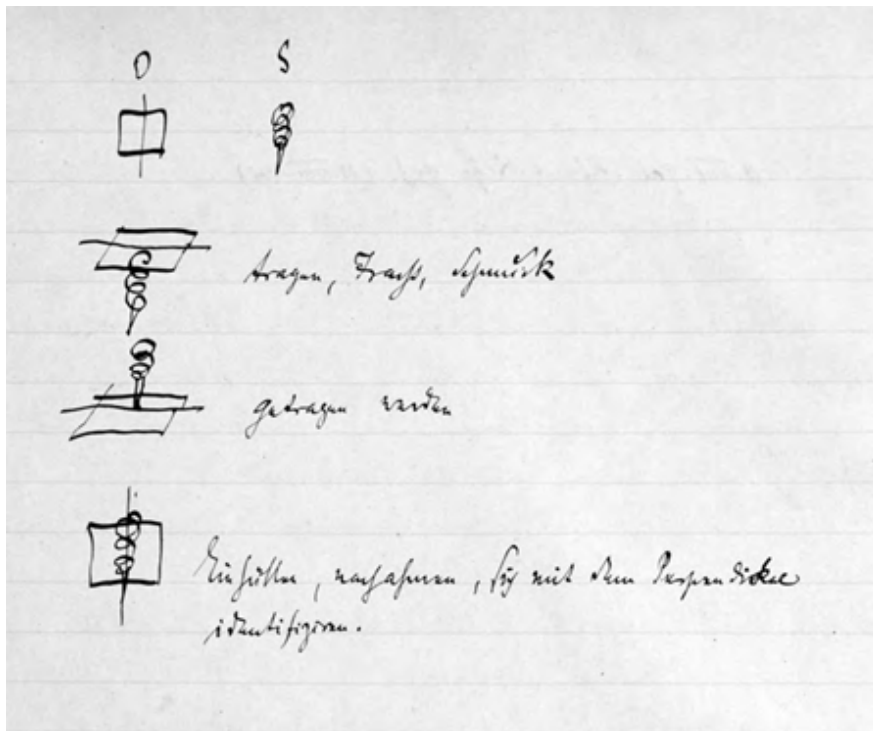 O S
tragen, Tracht, Schmuck
getragen werden
Einhüllen, nachahmen, sich mit dem Perpendikel
identifiziren.